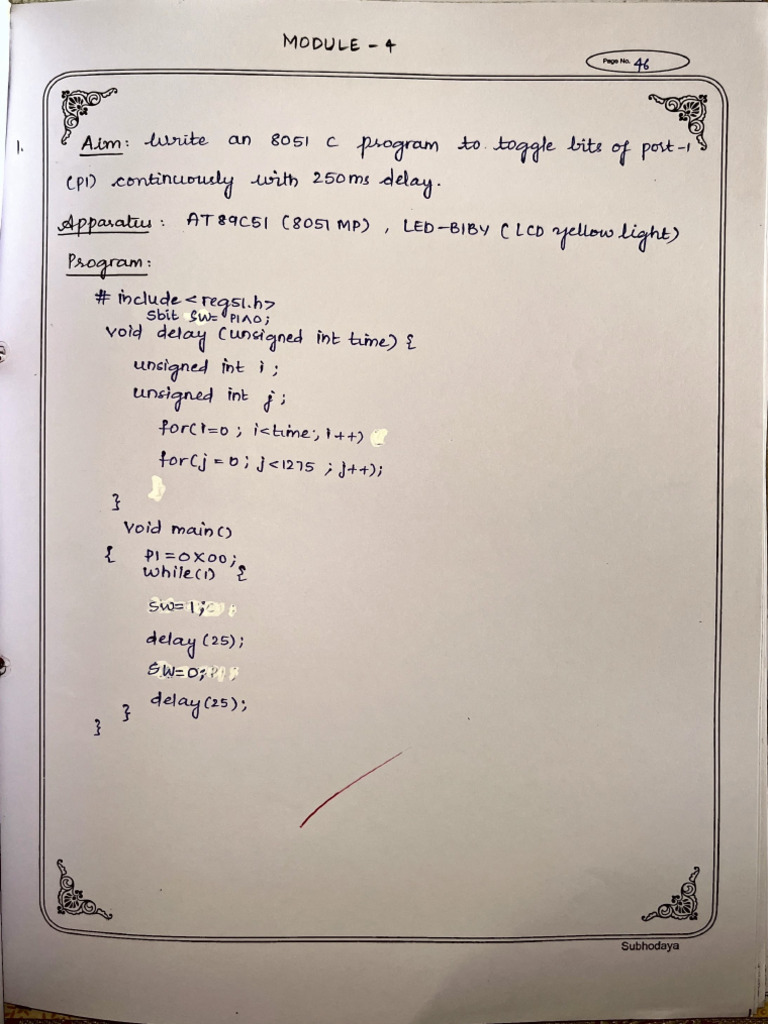 MODULE - 4
Page No. 46
1. Aim: Write an 8051 C program to toggle bits of port-1
(P1) continuously with 250ms delay.
Apparatus: AT89C51 (8051 MP), LED-BIBY (LCD yellow light)
Program:
# include <reg51.h>
Sbit SW= P1^0;
void delay (unsigned int time) {
unsigned int i ;
unsigned int j ;
for(i=0 ; i<time; i++)
for(j = 0; j<1275 ; j++);
}
void main()
{ P1=0X00;
while(1) {
SW=1;
delay (25);
SW=0;
delay(25);
}
}
Subhodaya